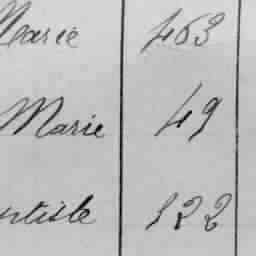 Marie 463
Marie 49
ntiste 122